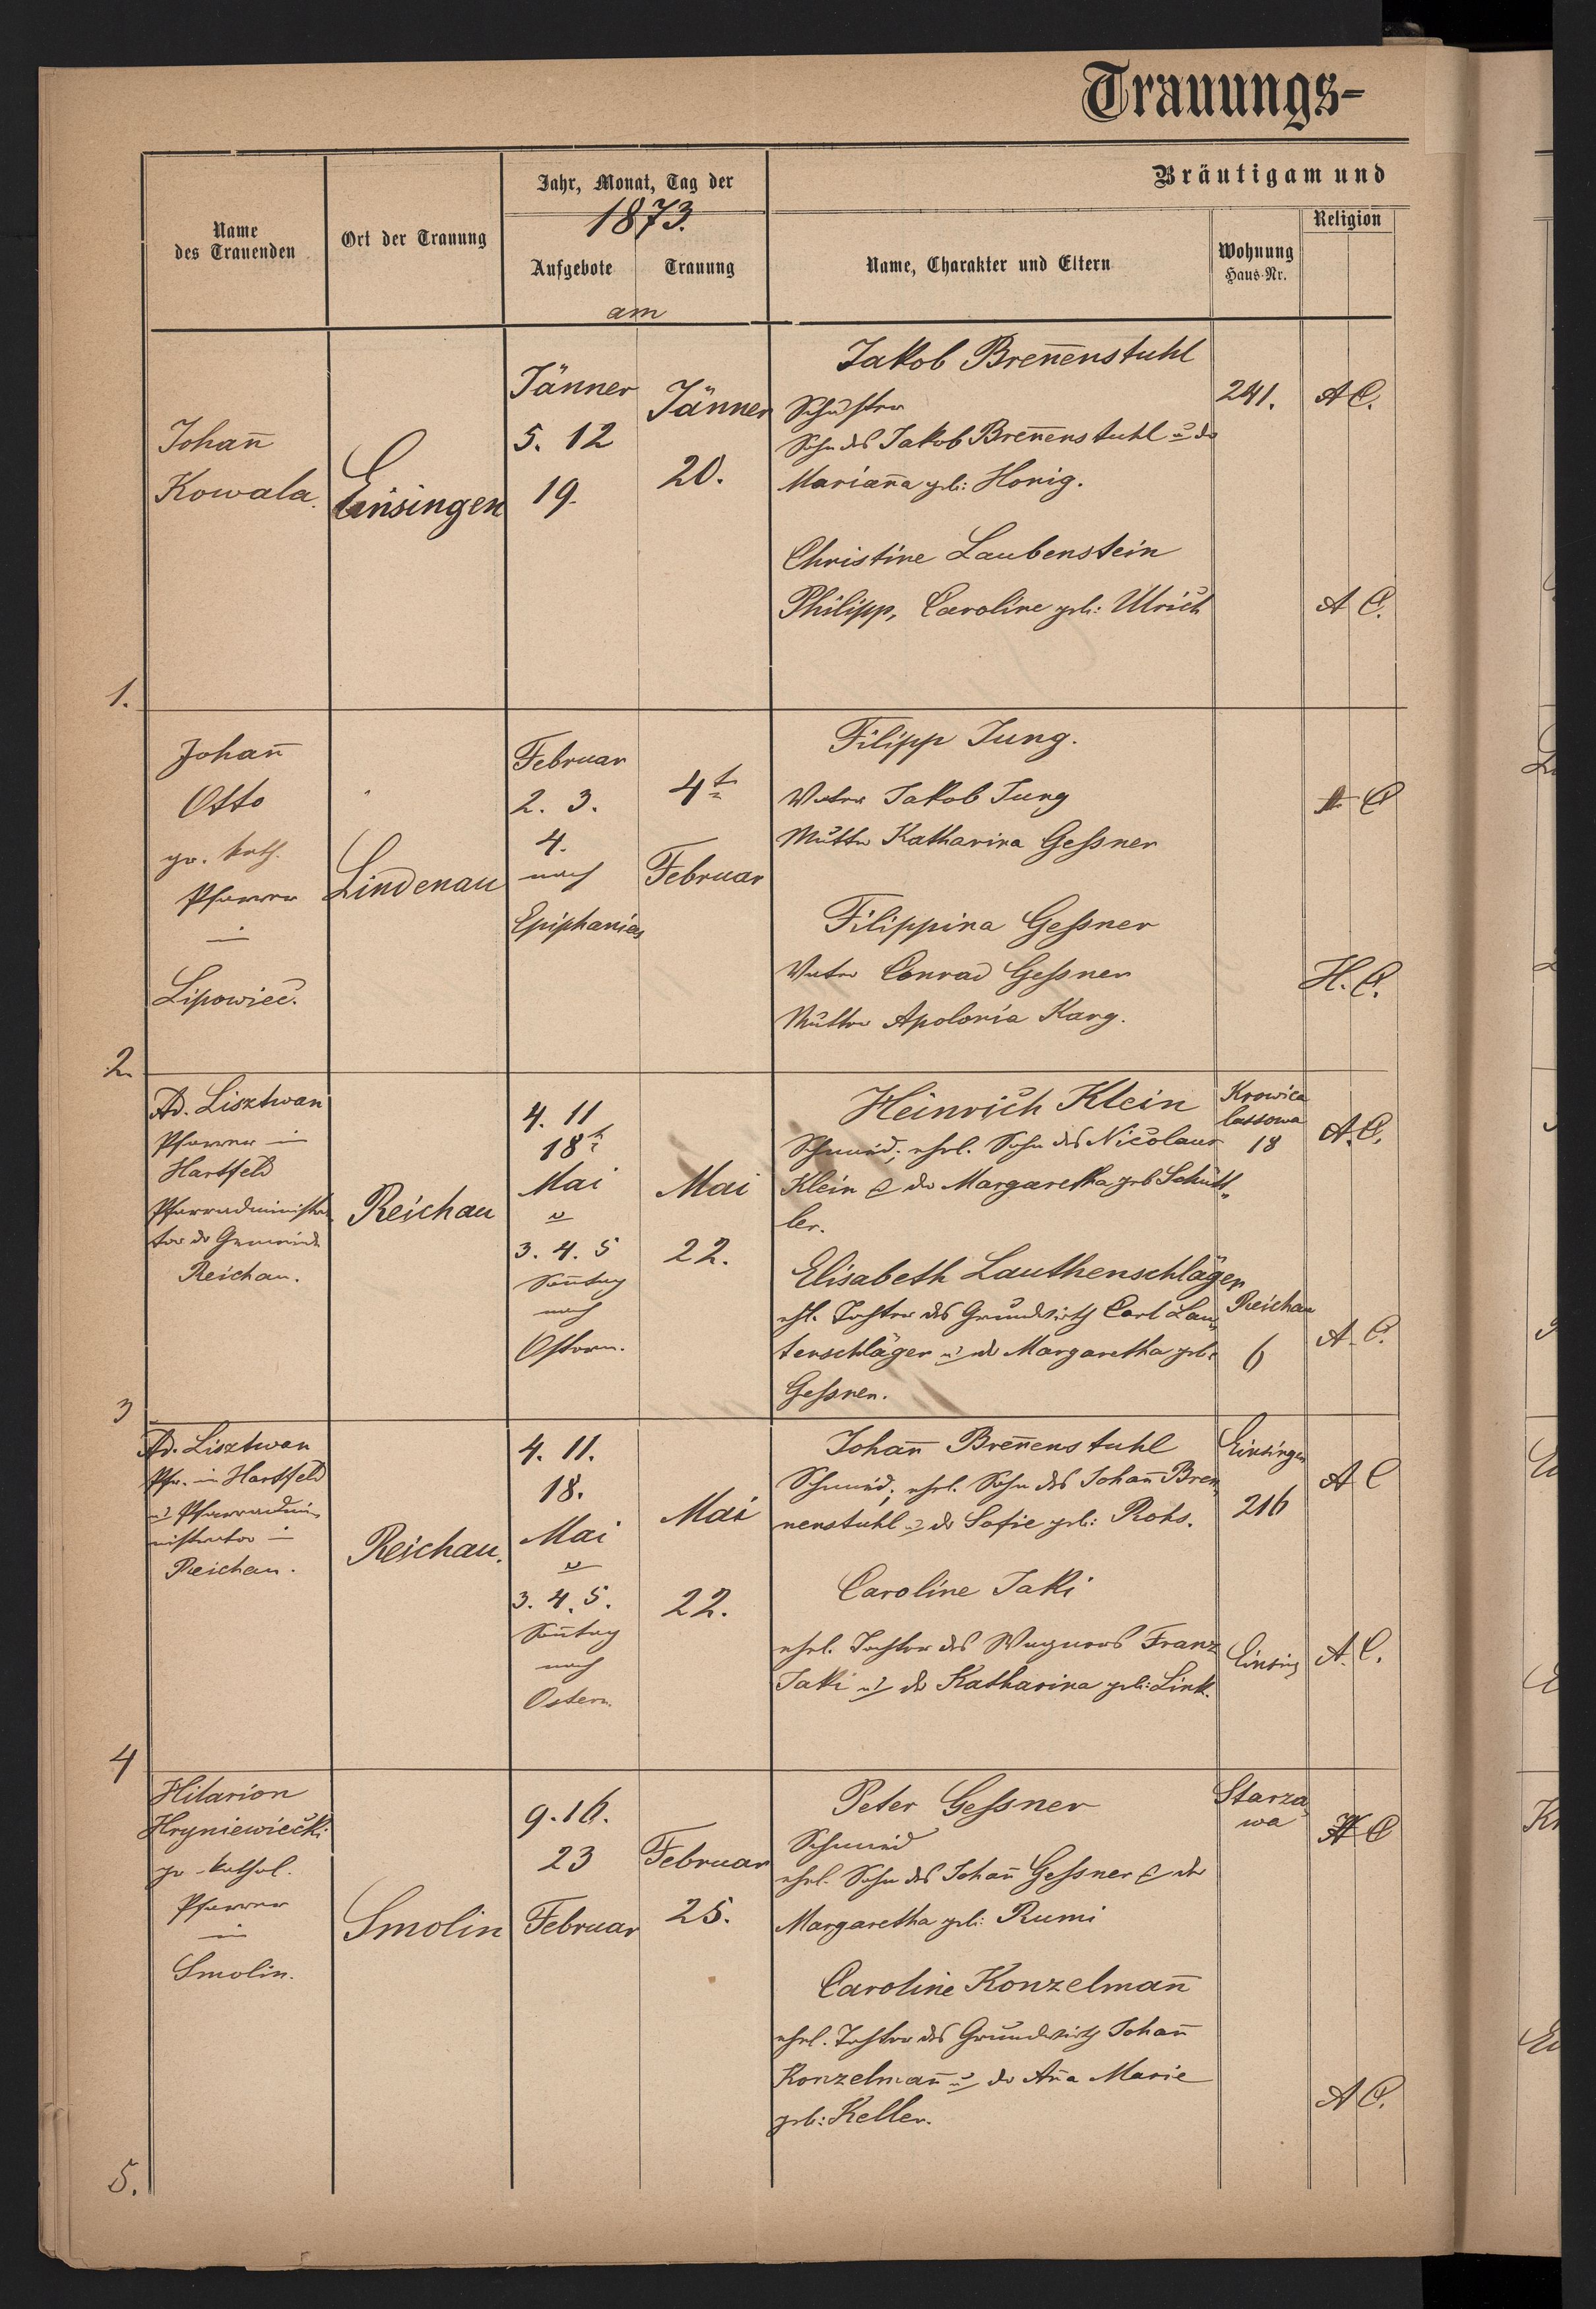 Trauungs-
Name
des Trauenden
Ort der Trauung
Jahr, Monat, Tag der
1873.
Aufgebote
Trauung
am
Bräutigam und
Name, Charakter und Eltern
Wohnung
Haus-Nr.
Religion
1.
Johan̄
Kowala.
Einsingen
Jänner
5. 12
19.
Jänner
20.
Jakob Bren̄enstuhl
Schuster
Sohn des Jakob Bren̄enstuhl u. der
Marian̄a geb: Honig.
241.
A C.
Christine Laubenstein
Philipp, Caroline geb: Ulrich
A C.
2.
Johan̄
Otto
gr. kath.
Pfarrer
in
Lipowiec.
Lindenau
Februar
2. 3.
4.
nach
Epiphanias
4t
Februar
Filipp Jung.
Vater Jakob Jung
Mutter Katharina Geſsner
A C
Filippina Geſsner
Vater Conrad Geſsner
Mutter Apolonia Karg.
H. C.
3
Ad. Lisztwan
Pfarrer in
Hartfeld
Pfarradministra-
tor der Gemeinde
Reichau.
Reichau
4. 11
18t
Mai
u
3. 4. 5
Son̄tag
nach
Ostern.
Mai
22.
Heinrich Klein
Schmied, ehel. Sohn des Nicolaus
Klein & der Margaretha geb Schütt„
ler.
Krowica
lassowa
18
A. C.
Elisabeth Lauthenschläger
ehl. Tochter des Grundwirth Carl Lau„
tenschläger u. der Margaretha geb:
Geſsner.
Reichau
6
A. C.
4
Ad. Lisztwan
Pfr. in Hartfeld
u. Pfarradmi„
nistrator in
Reichau.
Reichau.
4. 11.
18.
Mai
u
3. 4. 5.
Son̄tag
nach
Ostern.
Mai
22.
Johan̄ Bren̄enstuhl
Schmied, ehel. Sohn des Johan̄ Bren„
nenstuhl u. der Sofie geb: Rohs.
Einsingen
216
A C
Caroline Jaki
ehel. Tochter des Wagners Franz
Jaki u. der Katharina geb: Link.
Einsing
A. C.
5.
Hilarion
Hryniewiecki
gr-kathol.
Pfarrer
in
Smolin.
Smolin
9. 16.
23
Februar
Februar
25.
Peter Geſsner
Schmied
ehel. Sohn des Johan̄ Geſsner & der
Margaretha geb: Rumi
Starza„
wa
H C
Caroline Konzelman̄
ehel. Tochter des Grundwirth Johan̄
Konzelman̄ u. der An̄a Marie
geb: Keller.
A C.